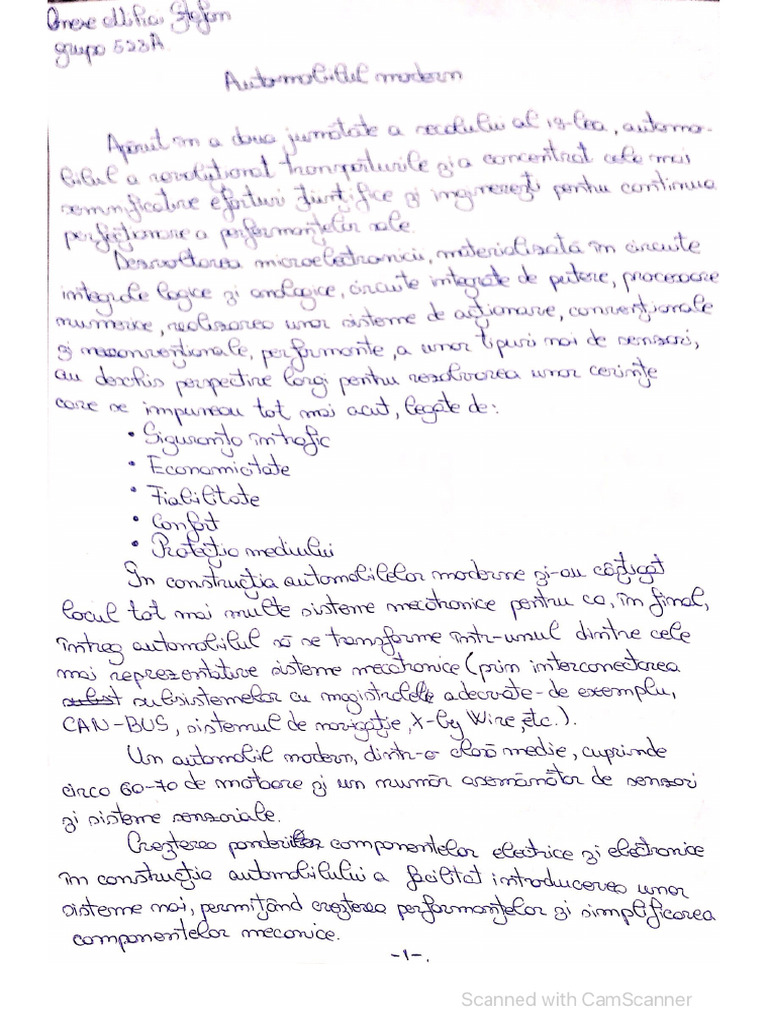 Ștefan
grupa 523A
Automobilul modern
Apărut în a doua jumătate a secolului al 19-lea, automo-
bilul a revoluționat transporturile și a concentrat cele mai
semnificative eforturi științifice și inginerești pentru continua
perfecționare a performanțelor sale.
Dezvoltarea microelectronicii, materializată în circuite
integrate logice și analogice, circuite integrate de putere, procesoare
numerice, realizarea unor sisteme de acționare, convenționale
și neconvenționale, performante, a unor tipuri noi de senzori,
au deschis perspective largi pentru rezolvarea unor cerințe
care se impuneau tot mai acut, legate de:
• Siguranță în trafic
• Economicitate
• Fiabilitate
• Confort
• Protecția mediului
În construcția automobilelor moderne și-au câștigat
locul tot mai multe sisteme mecatronice pentru ca, în final,
întreg automobilul să se transforme într-unul dintre cele
mai reprezentative sisteme mecatronice (prin interconectarea
subsistemelor cu magistrale adecvate - de exemplu,
CAN-BUS, sistemul de navigație, X-by Wire, etc.).
Un automobil modern, dintr-o clasă medie, cuprinde
circa 60-70 de motoare și un număr asemănător de senzori
și sisteme senzoriale.
Creșterea ponderilor componentelor electrice și electronice
în construcția automobilului a facilitat introducerea unor
sisteme noi, permițând creșterea performanțelor și simplificarea
componentelor mecanice.
-1-.
Scanned with CamScanner